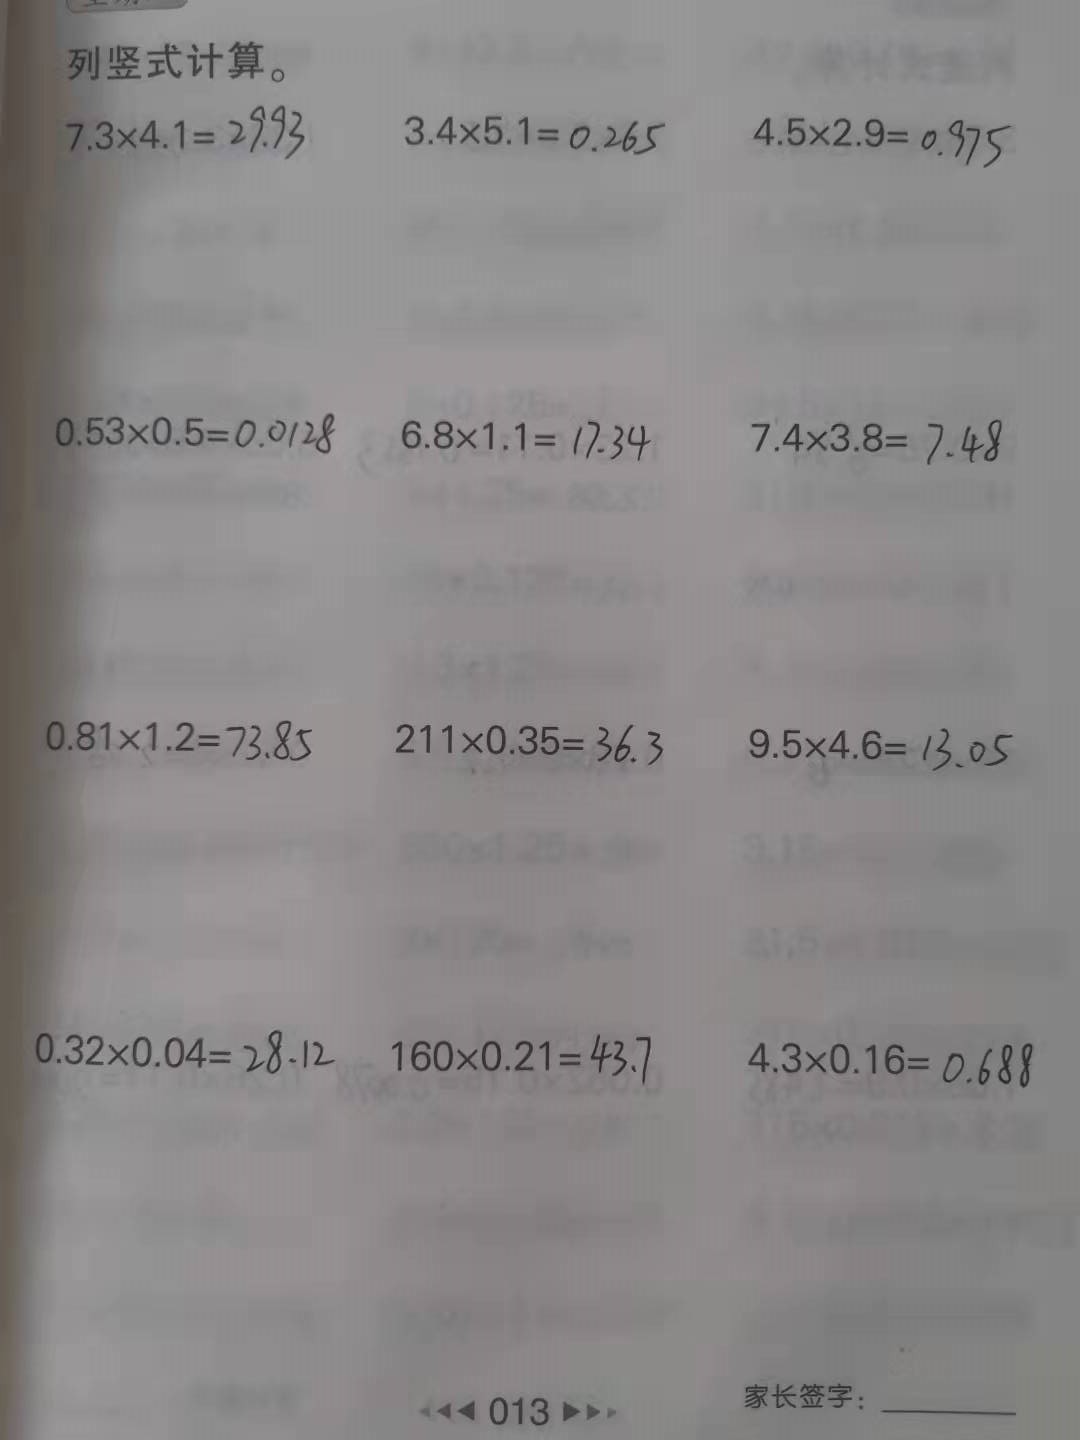 列竖式计算。
7.3×4.1=29.93 3.4×5.1=0.265 4.5×2.9=0.975
0.53×0.5=0.0128 6.8×1.1=17.34 7.4×3.8=7.48
0.81×1.2=73.85 211×0.35=36.3 9.5×4.6=13.05
0.32×0.04=28.12 160×0.21=43.7 4.3×0.16=0.688
家长签字:
013